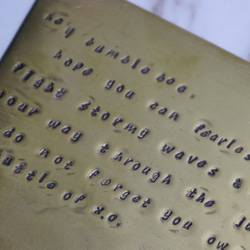 hey bumble bee,
hope you can fearles
fight stormy waves &
your way through the
do not forget you ow
ustle of xo.